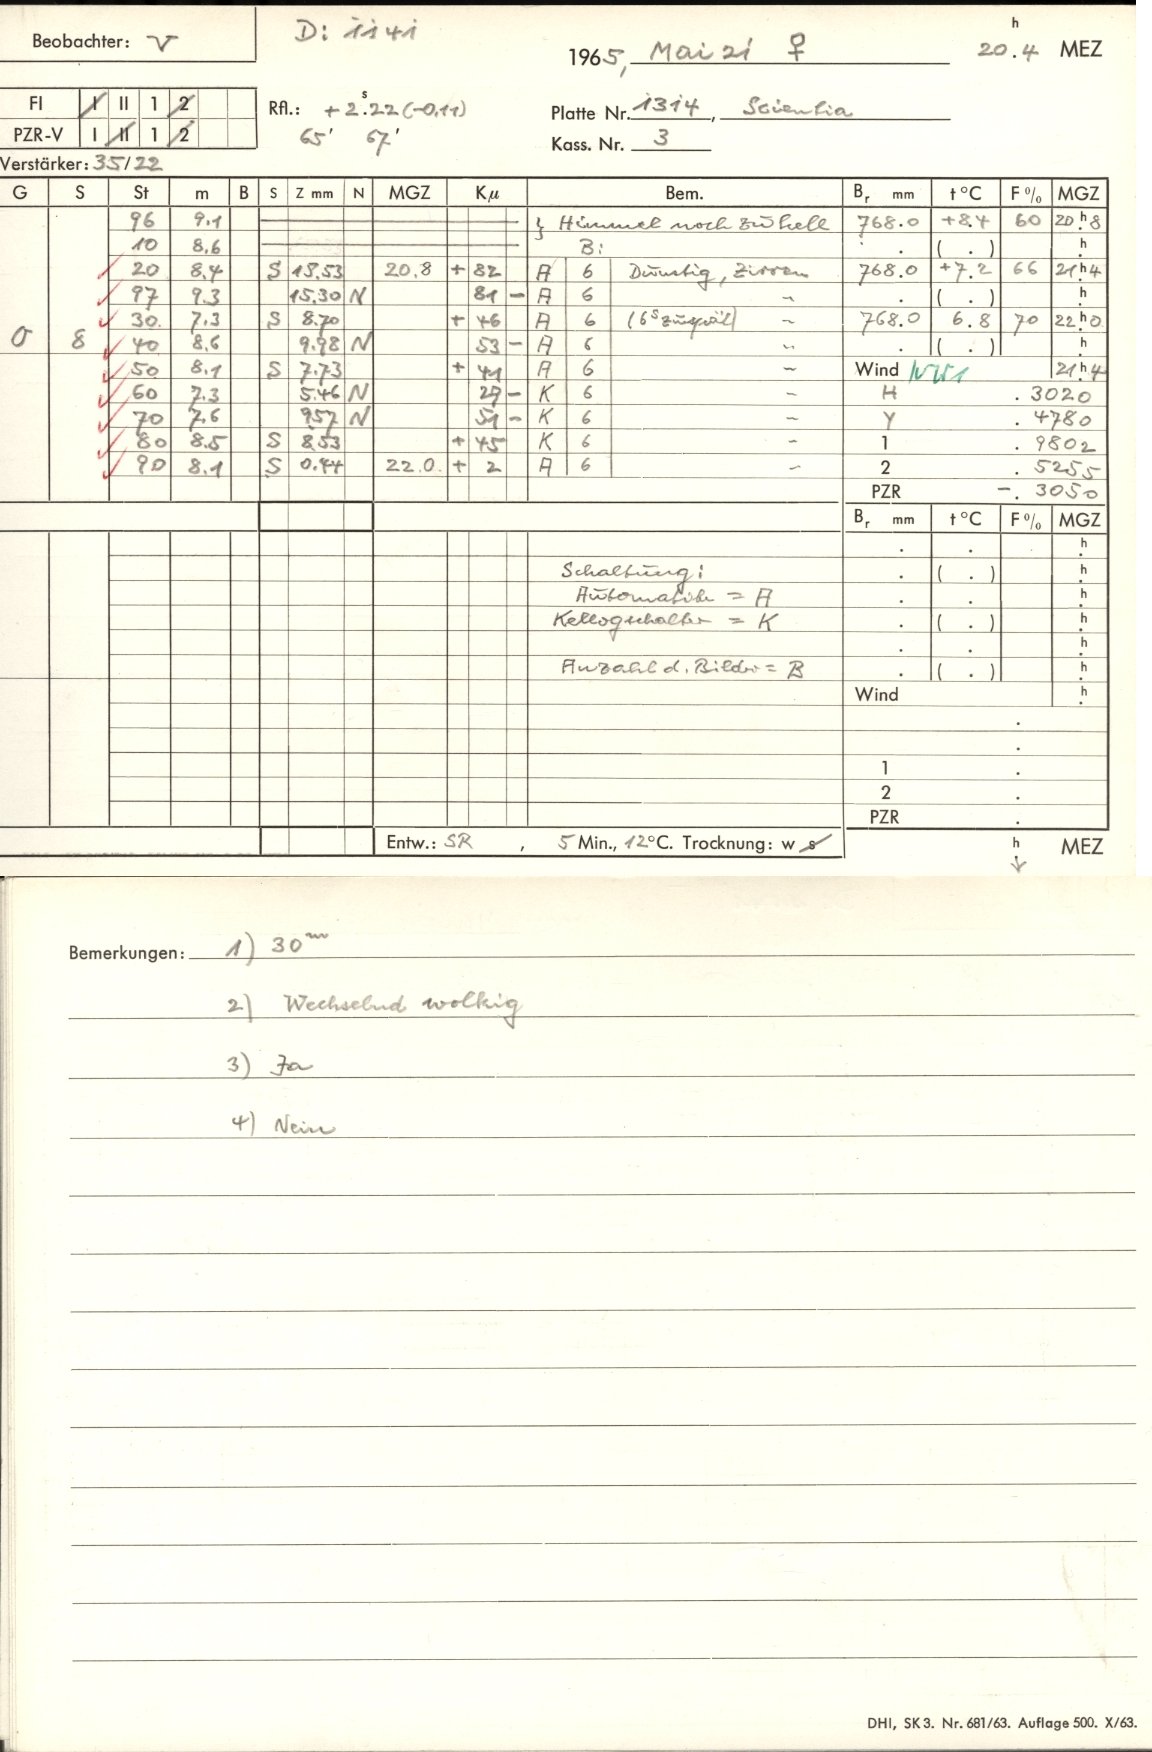 Beobachter: V
D: 1141
1965, Mai 21 ♀
20.4 h MEZ
FI I II 1 2
PZR-V I II 1 2
Rfl.: +2.22 s (-0,11)
65' 67'
Platte Nr. 1314, Scientia
Kass. Nr. 3
Verstärker: 35/22
G S St m B S Z mm N MGZ Kμ Bem. Br mm t °C F % MGZ
96 9.1 } Himmel noch zu hell 768.0 +8.4 60 20 h 8
10 8.6 B: . ( . ) h
20 8.4 S 15.53 20.8 + 82 A 6 Dunstig, Zirren 768.0 +7.2 66 21 h 4
97 9.3 15.30 N 81 - A 6 " . ( . ) h
30. 7.3 S 8.70 + 46 A 6 " 768.0 6.8 70 22 h 0
0 8 40 8.6 9.98 N 53 - A 6 " . ( . ) h
50 8.1 S 7.73 + 41 A 6 " Wind NW1 21 h 4
60 7.3 5.46 N 29 - K 6 " H . 3020
70 7.6 9.57 N 51 - K 6 " Y . 4780
80 8.5 S 8.53 + 45 K 6 " 1 . 9802
90 8.1 S 0.44 22.0. + 2 A 6 " 2 . 5255
PZR -. 3050
Br mm t °C F % MGZ
. . h
Schaltung: . ( . ) h
Automatik = A . . h
Kellogschalter = K . ( . ) h
. . h
Anzahl d. Bilder = B . ( . ) h
Wind h
.
.
1 .
2 .
PZR .
Entw.: SR , 5 Min., 12°C. Trocknung: w s
h MEZ
Bemerkungen: 1) 30 m
2) Wechselnd wolkig
3) Ja
4) Nein
DHI, SK 3. Nr. 681/63. Auflage 500. X/63.